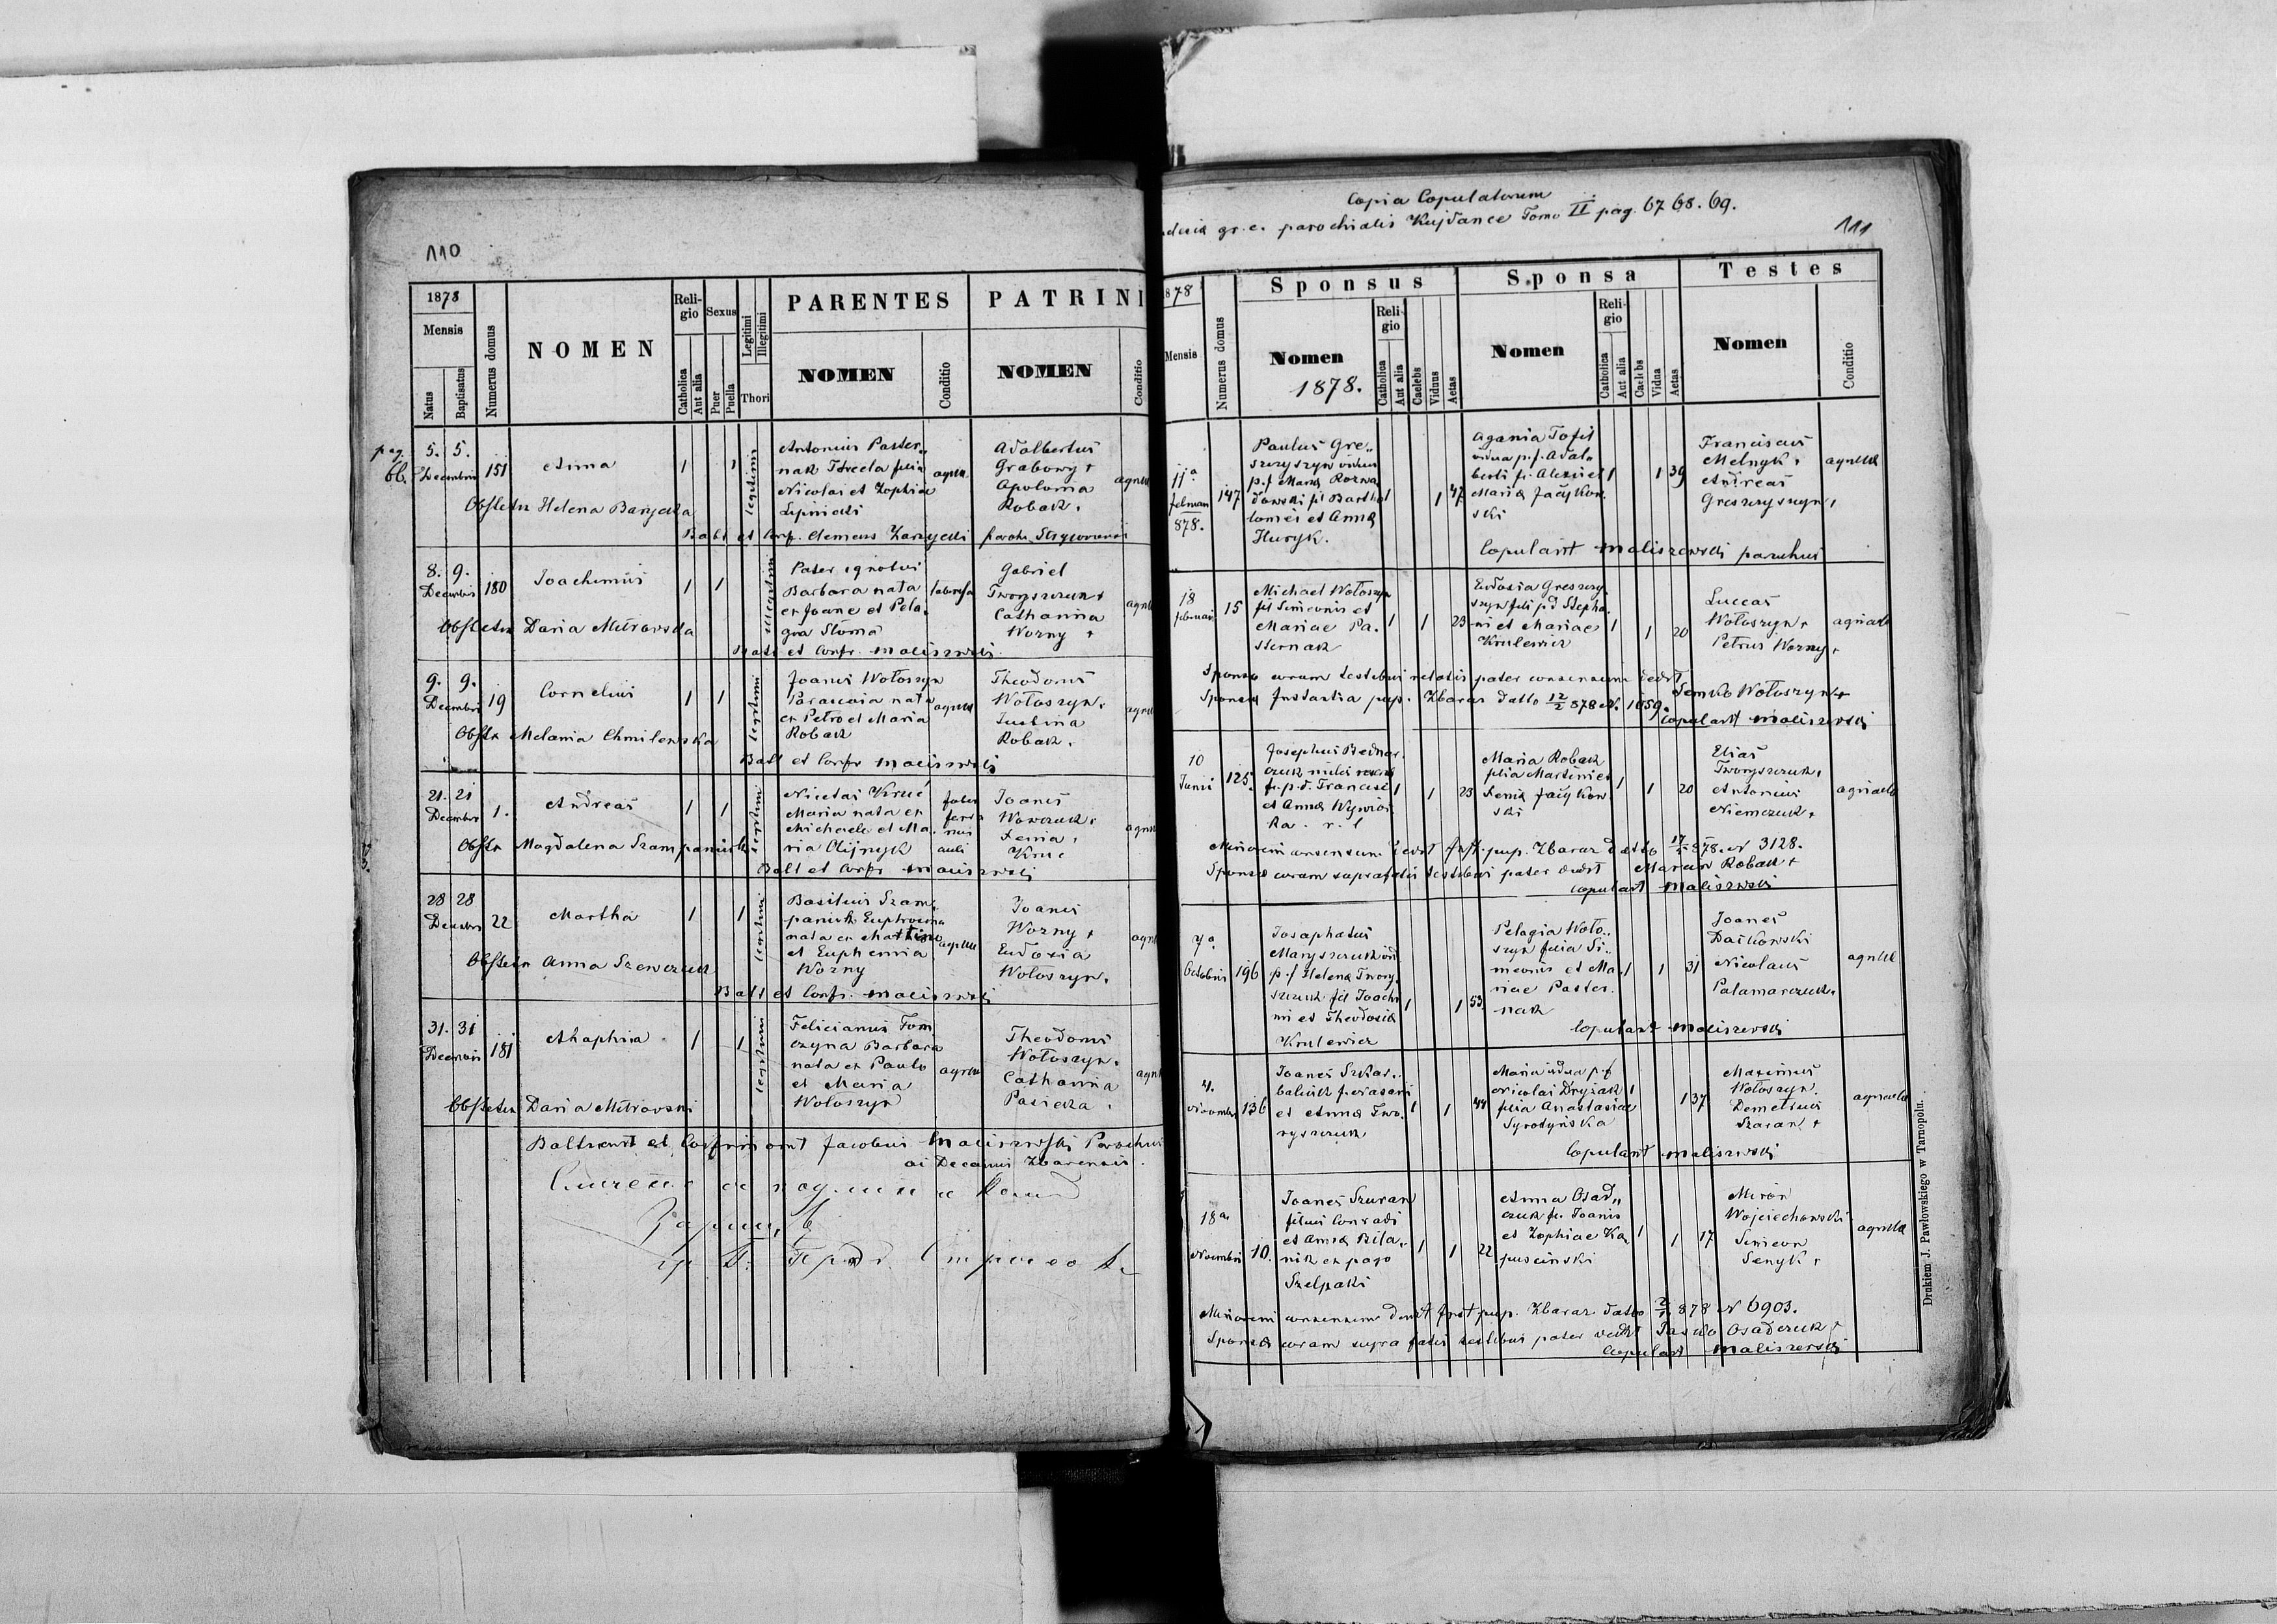 110
1878
Mensis
Natus
Baptisatus
Numerus domus
NOMEN
Religio
Catholica
Aut alia
Sexus
Puer
Puella
Legitimi
Illegitimi
Thori
PARENTES
NOMEN
Conditio
PATRINI
NOMEN
Conditio
pag. 66.
5. 5.
Decembris
151
Anna
1 1
legitimi
Antonius Paster„
nak Thecla filia
Nicolai et Zophiae
Lipnicki
agricolae
Adalbertus
Grabowy +
Apolonia
Robak +
Obstetrix Helena Barycka
Bapt et Conf. Clemens Zarzycki paroch.
8. 9.
Decembris
180
Joachimus
1 1
illegitimi
Pater ignotus
Barbara nata
ex Joane et Pela
gia Sloma
Gabriel
Tworyszczuk +
Catharina
Worny +
Obstetrix Daria Mitrowska
Bapt et Confr. Maliszewski
9. 9.
Decembris
19
Cornelius
1 1
legitimi
Joanes Wołoszyn
Parascevia nata
ex Petro et Maria
Robak
agricolae
Theodorus
Wołoszyn +
Justina
Robak +
Obstx Melania Chmilewska
Bapt et Confr Maliszewski
21. 21
Decembris
1.
Andreas
1 1
legitimi
Nicetas Kruć
Maria nata ex
Michaele et Ma
ria Olijnyk
faber
ferra
rius
Joanes
Wowczuk +
Xenia +
Kruć
Obstx Magdalena Szampaniuk
Bapt et Confr Maliszewski
28 28
Decembris
22
Martha
1 1
legitimi
Basilius Szam
paniuk Euphrosina
nata ex Martino
et Euphemia
Worny
agricolae
Joanes
Worny +
Eudoxia
Wołoszyn +
Obstetrix Anna Szewczuk
Bapt et Confr. Maliszewski
31. 31
Decembris
181
Ahaphia
1 1
legitimi
Felicianus Tom
czyna Barbara
nata ex Paulo
et Maria
Wołoszyn
agricolae
Theodorus
Wołoszyn +
Catharina
Pasieka +
Obstetrix Daria Mitrowski
Baptizavit et Confirmavit Jacobus Maliszewski Parochus
ac Decanus Zbarensis.
Copia Copulatorum
gr. c. parochialis Kujdance Tomo II pag. 67 68. 69.
111
1878
Mensis
Numerus domus
Sponsus
Nomen
1878.
Religio
Catholica
Aut alia
Caelebs
Viduus
Aetas
Sponsa
Nomen
Religio
Catholica
Aut alia
Caelebs
Vidua
Aetas
Testes
Nomen
Conditio
11a
Februarii
878.
147
Paulus Gre„
szczyszyn viduus
p.f Maria Rozwa
dowski fil Bartho
lomei et Anna
Huryk.
1 1 47
Agania Tofil
vidua p.f. Adal
berti fi Alexii et
Maria Jaćykow
ski
1 1 39
Franciscus
Melnyk +
Andreas
Greszczyszyn +
agricolae
Copulavit Maliszewski parochus
18
Februarii
15
Michael Wołoszyn
fil Simeonis et
Mariae Pa
sternak
1 1 23
Eudoxia Greszczy
szyn fili pd Stepha
ni et Mariae
Krulewicz
1 1 20
Luccas
Wołoszyn +
Petrus Worny +
agricolae
Sponso coram testibus relatis pater consensum dedit Semko Wołoszyn +
Sponsae Instantia pup. Zbaraż datto 12/2 878 N. 1059.
Copulavit Maliszewski
10
Junii
125.
Josephus Bednar
czuk miles reserv
fi. p.d. Francisci
et Anna Wywior
ka . r. l
1 1 23
Maria Robak
filia Martini et
Xenia Jaćykow
ski
1 1 20
Elias
Tworyszczuk +
Antonius
Niemczuk +
agricolae
Minoreni consensum dedit Inst. pup. Zbaraż datto 17/5 878. N 3128.
Sponsae coram suprafatis testibus pater dedit Marcin Robak +
Copulavit Maliszewski
7a
Octobris
196
Josaphatus
Maryszczuk vid
p.f Helena Twory
szczuk fil Joachi
mi et Theodosia
Krulewicz
1 1 53
Pelagia Woło„
szyn filia Si„
meonis et Ma
riae Paster
nak
1 1 31
Joanes
Daćkowski
Nicolaus
Palamarczuk +
agricolae
Copulavit Maliszewski
4.
Novembris
136
Joanes Szkar„
baluik fi Gerasimi
et Anna Two
ryszczuk
1 1 44
Maria vidua p.f
Nicolai Dryżak
filia Anastasiae
Syrotyńska
1 1 37
Maximus
Wołoszyn
Demetrius
Szaran +
agricolae
Copulavit Maliszewski
18a
Novembris
10.
Joanes Szuran
filius Conradi
et Anna Pila„
nik ex pago
Szelpaki
1 1 22
Anna Osad„
czuk fi. Joanis
et Zophiae Ka
puscinski
1 1 17
Miron
Wojciechowski
Simeon
Senyk +
agricolae
Minoreni consensum dedit Inst pup. Zbaraż datto 878 N 6903.
Sponsae coram supra fatis testibus pater dedit Iasko Osadczuk +
Copulavit Maliszewski
Drukiem J. Pawłowskiego w Tarnopolu.